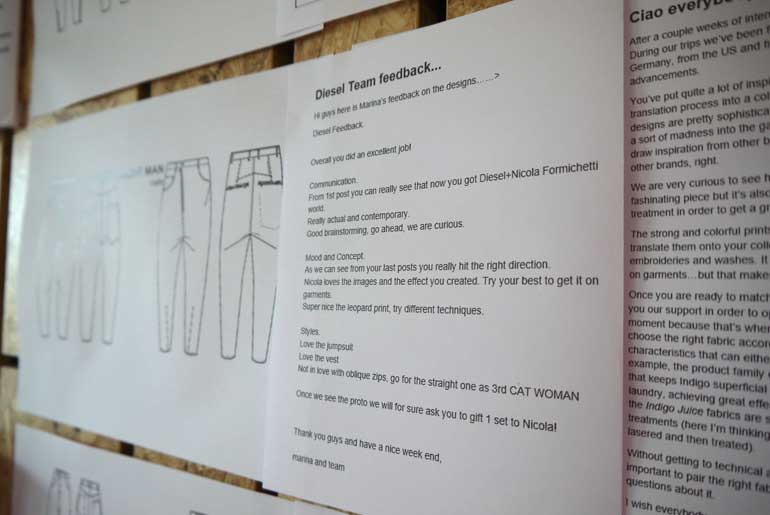 MAN
Diesel Team feedback...
Hi guys here is Marina's feedback on the designs……>
Diesel Feedback.
Overall you did an excellent job!
Communication.
From 1st post you can really see that now you got Diesel+Nicola Formichetti
world.
Really actual and contemporary.
Good brainstorming, go ahead, we are curious.
Mood and Concept.
As we can see from your last posts you really hit the right direction.
Nicola loves the images and the effect you created. Try your best to get it on
garments.
Super nice the leopard print, try different techniques.
Styles.
Love the jumpsuit
Love the vest
Not in love with oblique zips, go for the straight one as 3rd CAT WOMAN
Once we see the proto we will for sure ask you to gift 1 set to Nicola!
Thank you guys and have a nice week end,
marina and team
Ciao
After a couple weeks of
During our trips we've been
Germany, from the US and
advancements.
You've put quite a lot of
translation process into a
designs are pretty
a sort of madness into the
draw inspiration from other
other brands, right.
We are very curious to see
fashinating piece but it's also
treatment in order to get a
The strong and colorful prints
translate them onto your
embroideries and washes. It
on garments...but that
Once you are ready to match
you our support in order to
moment because that's
choose the right fabric
characteristics that can
example, the product family
that keeps Indigo superficial
laundry, achieving great
the Indigo Juice fabrics are
treatments (here I'm thinking
lasered and then treated).
Without getting to technical
important to pair the right
questions about it.
I wish